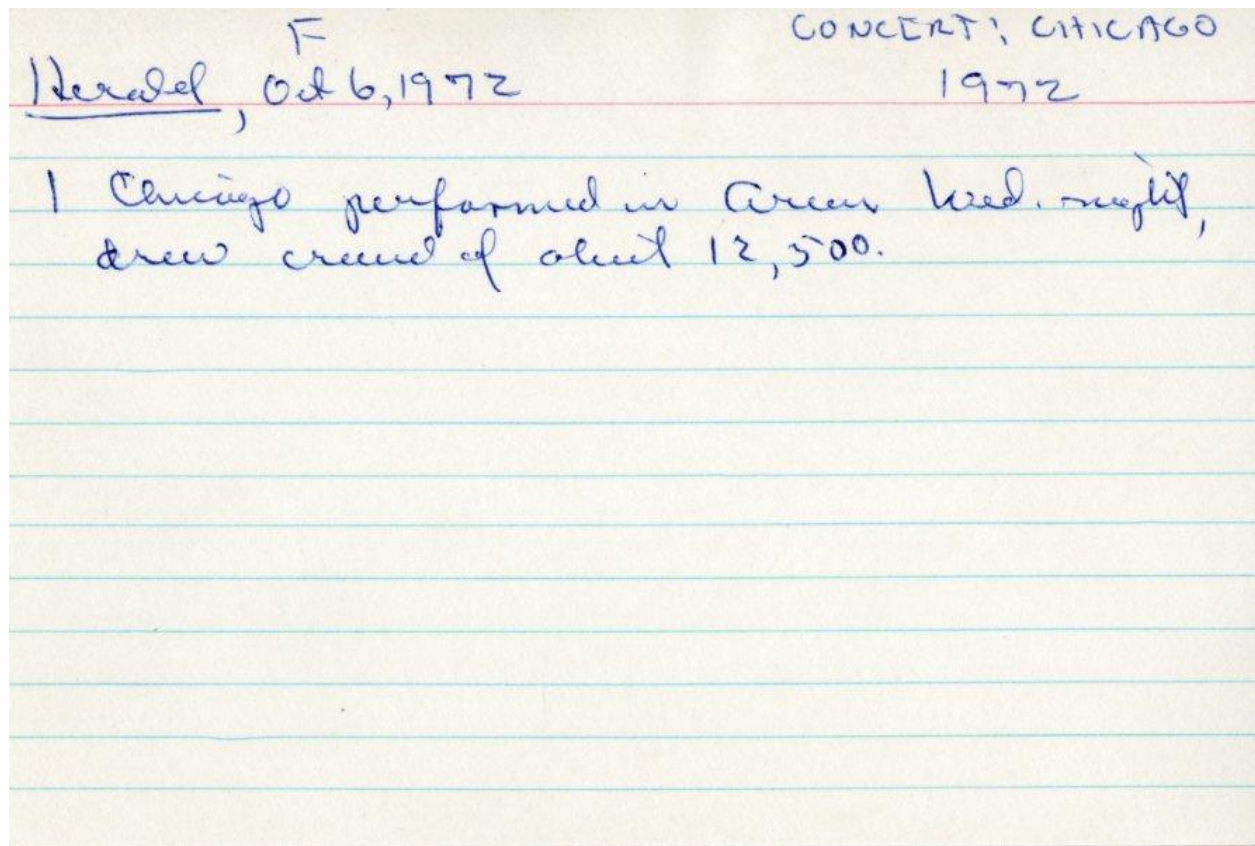 F
CONCERT: CHICAGO
Herald, Oct 6, 1972
1972
1 Chicago performed in Arena Wed. night,
drew crowd of about 12,500.